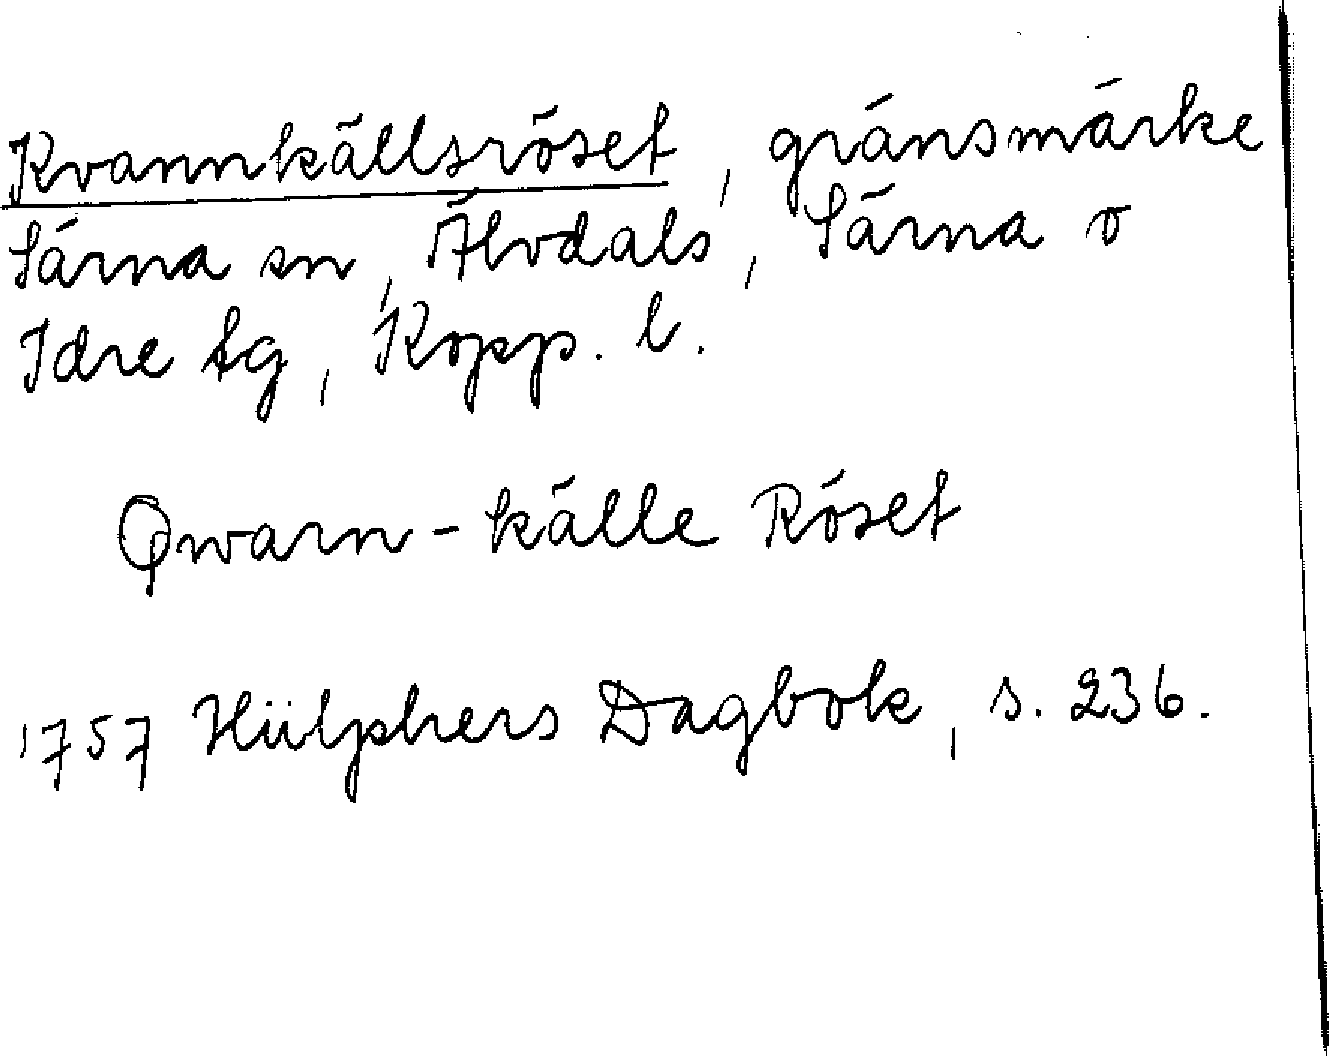 Kvannkällsröset, gränsmärke
Särna sn, Älvdals, Särna o
Idre tg, Kopp. l.
Qwarn-källe Röset
1757 Hülphers Dagbok, s. 236.